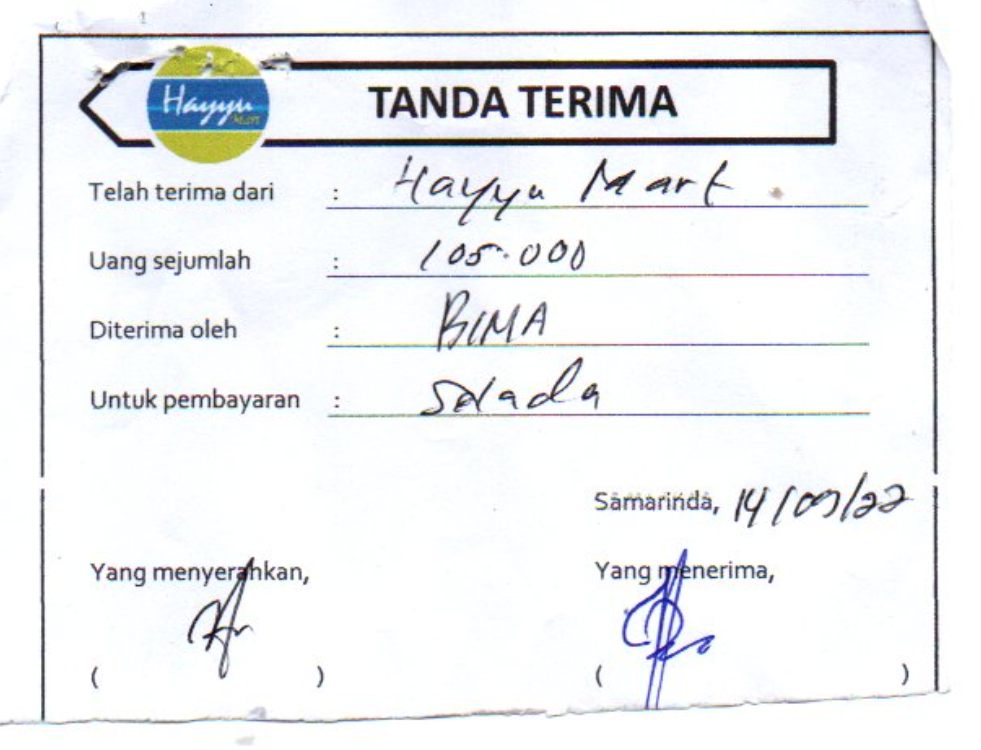 Hayyu
Mart
TANDA TERIMA
Telah terima dari : Hayyu Mart
Uang sejumlah : 105.000
Diterima oleh : BIMA
Untuk pembayaran : Selada
Samarinda, 14/09/22
Yang menyerahkan, Yang menerima,
( ) ( )